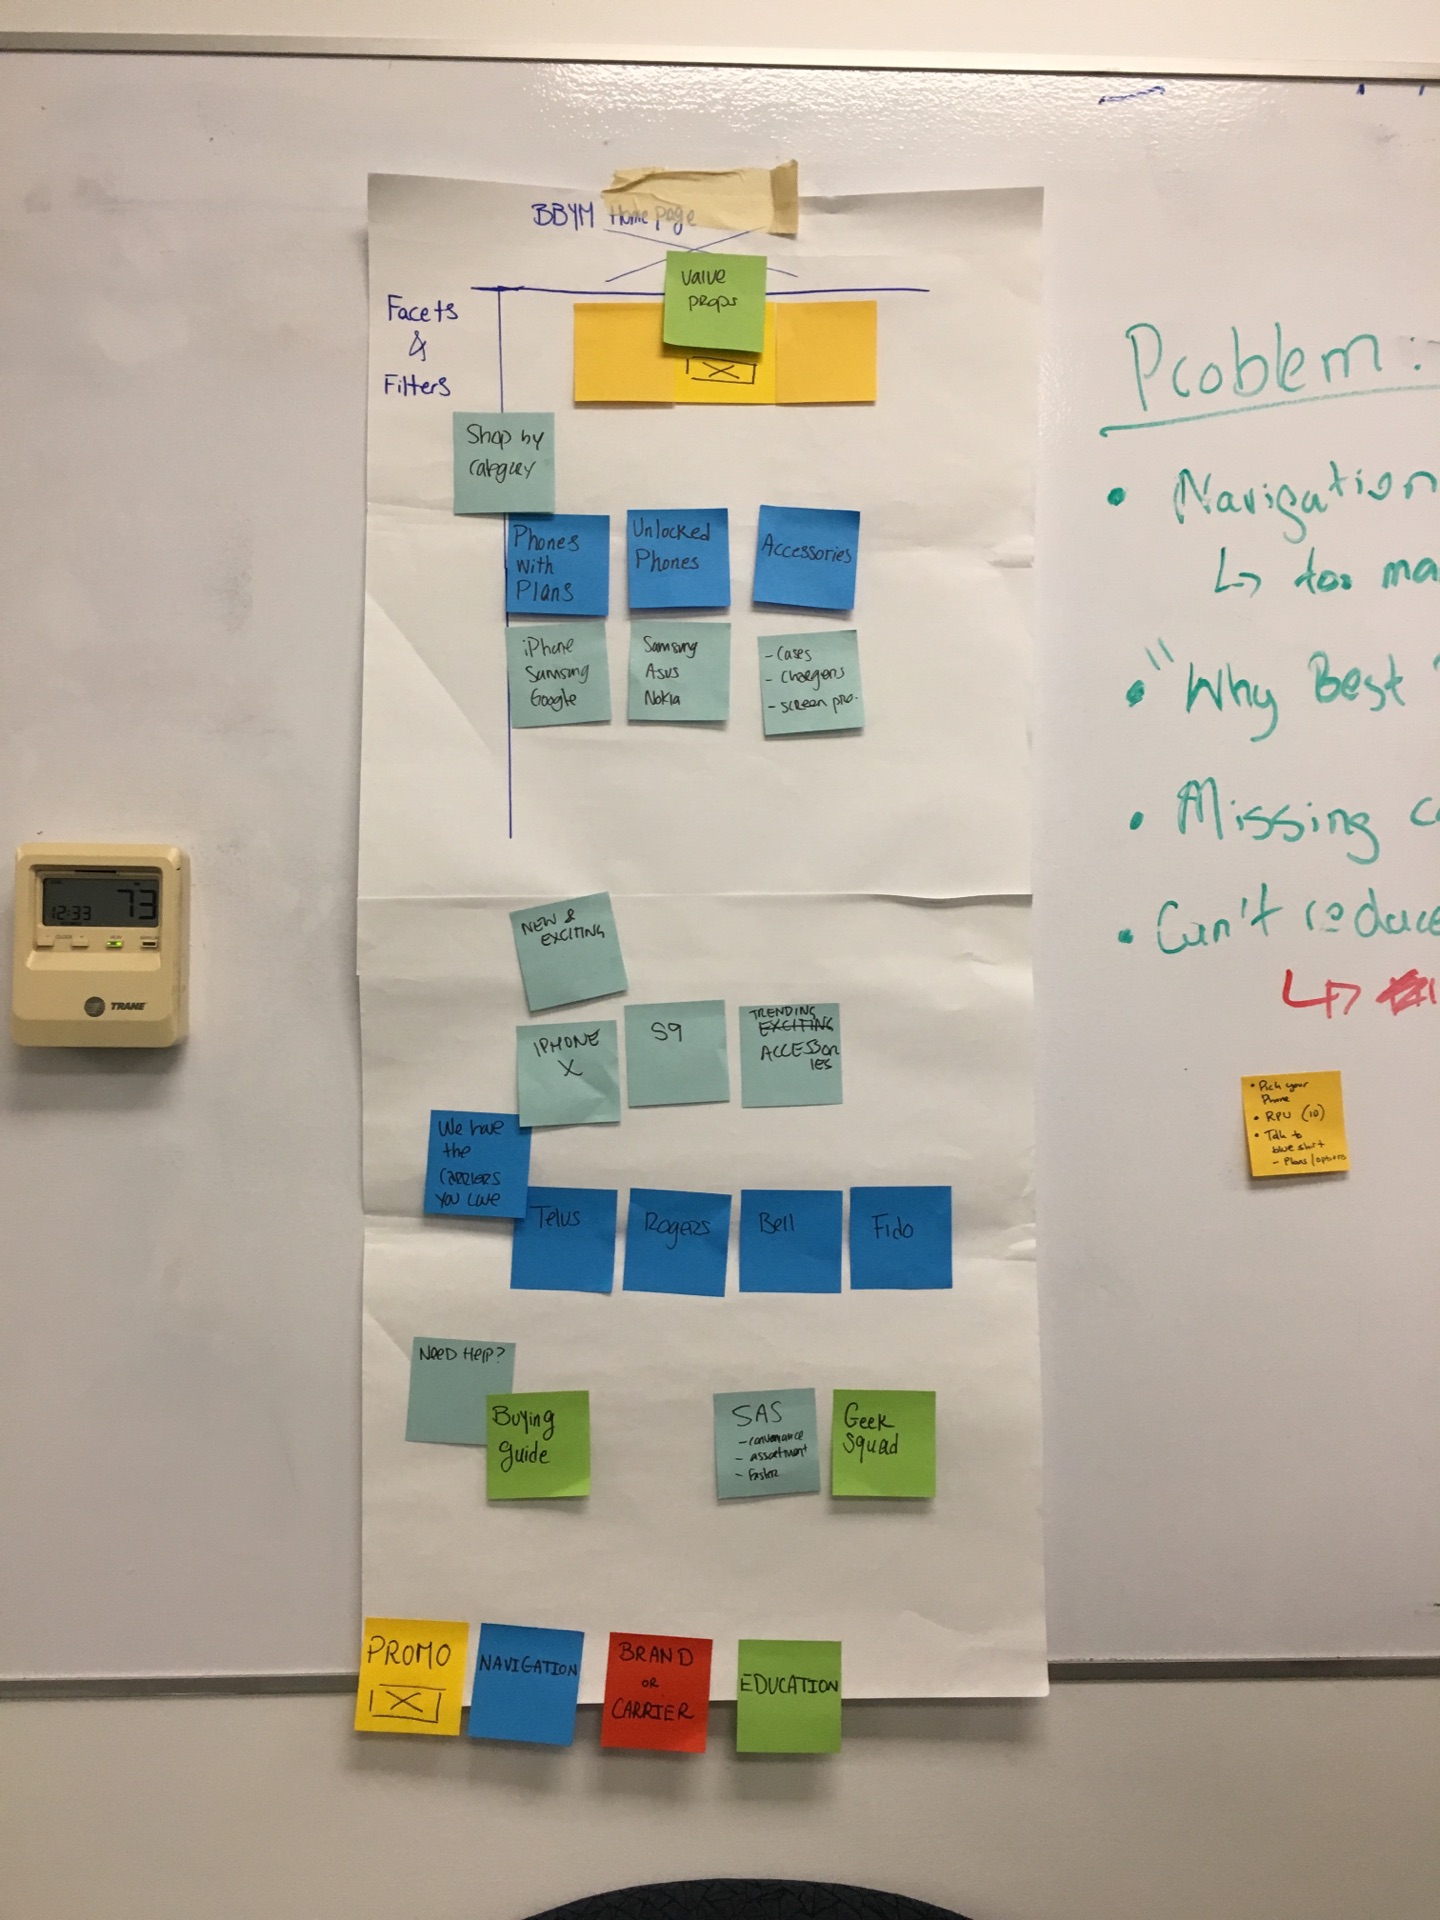 BBYM Home page
value
props
Facets
&
Filters
Shop by
Category
Phones
with
Plans
Unlocked
Phones
Accessories
iPhone
Samsung
Google
Samsung
Asus
Nokia
- Cases
- Chargers
- screen pro.
NEW &
EXCITING
IPHONE
X
S9
TRENDING
EXCITING
ACCESSOR
IES
We have
the
CARRIERS
YOU LOVE
Telus
Rogers
Bell
Fido
NEED HELP?
Buying
guide
SAS
- convenience
- assortment
- faster
Geek
Squad
PROMO
NAVIGATION
BRAND
OR
CARRIER
EDUCATION
Problem:
• Navigation
↳ too ma
• "Why Best
• Missing co
• Can't reduce
• Pick your
Phone
• RPU (10)
• Talk to
blue shirt
- Plans/options
12:33
73
TRANE